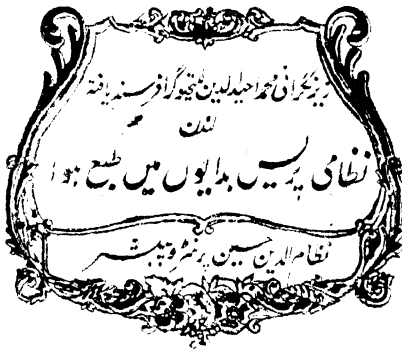 زیر نگرانی محمد احید الدین لیتھوگرافر سند یافتہ
لندن
نظامی پریس بدایوں میں طبع ہوا
نظام الدین حسین پرنٹر و پبلشر